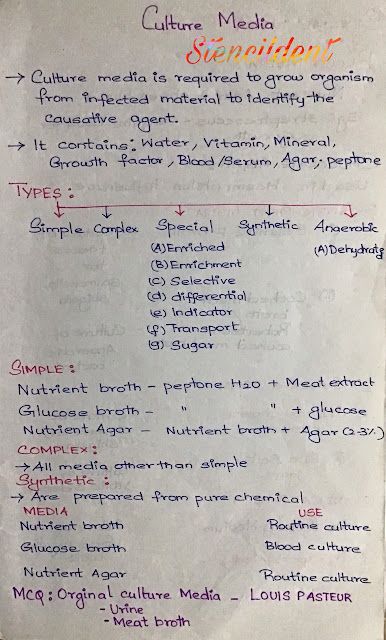 Culture Media
Siencildent
→ Culture media is required to grow organism
from infected material to identify the
causative agent.
→ It contains: Water, Vitamin, Mineral,
Growth factor, Blood/Serum, Agar, peptone
TYPES:
Simple Complex Special Synthetic Anaerobic
(A) Enriched (A) Dehydraig
(B) Enrichment
(c) Selective
(d) differential
(e) Indicator
(f) Transport
(g) Sugar
SIMPLE:
Nutrient broth - peptone H2O + Meat extract
Glucose broth - " " + glucose
Nutrient Agar - Nutrient broth + Agar (2-3%)
COMPLEX:
→ All media other than simple
Synthetic:
→ Are prepared from pure chemical
MEDIA USE
Nutrient broth Routine culture
Glucose broth Blood culture
Nutrient Agar Routine culture
MCQ: Orginal culture Media - LOUIS PASTEUR
- Urine
- Meat broth